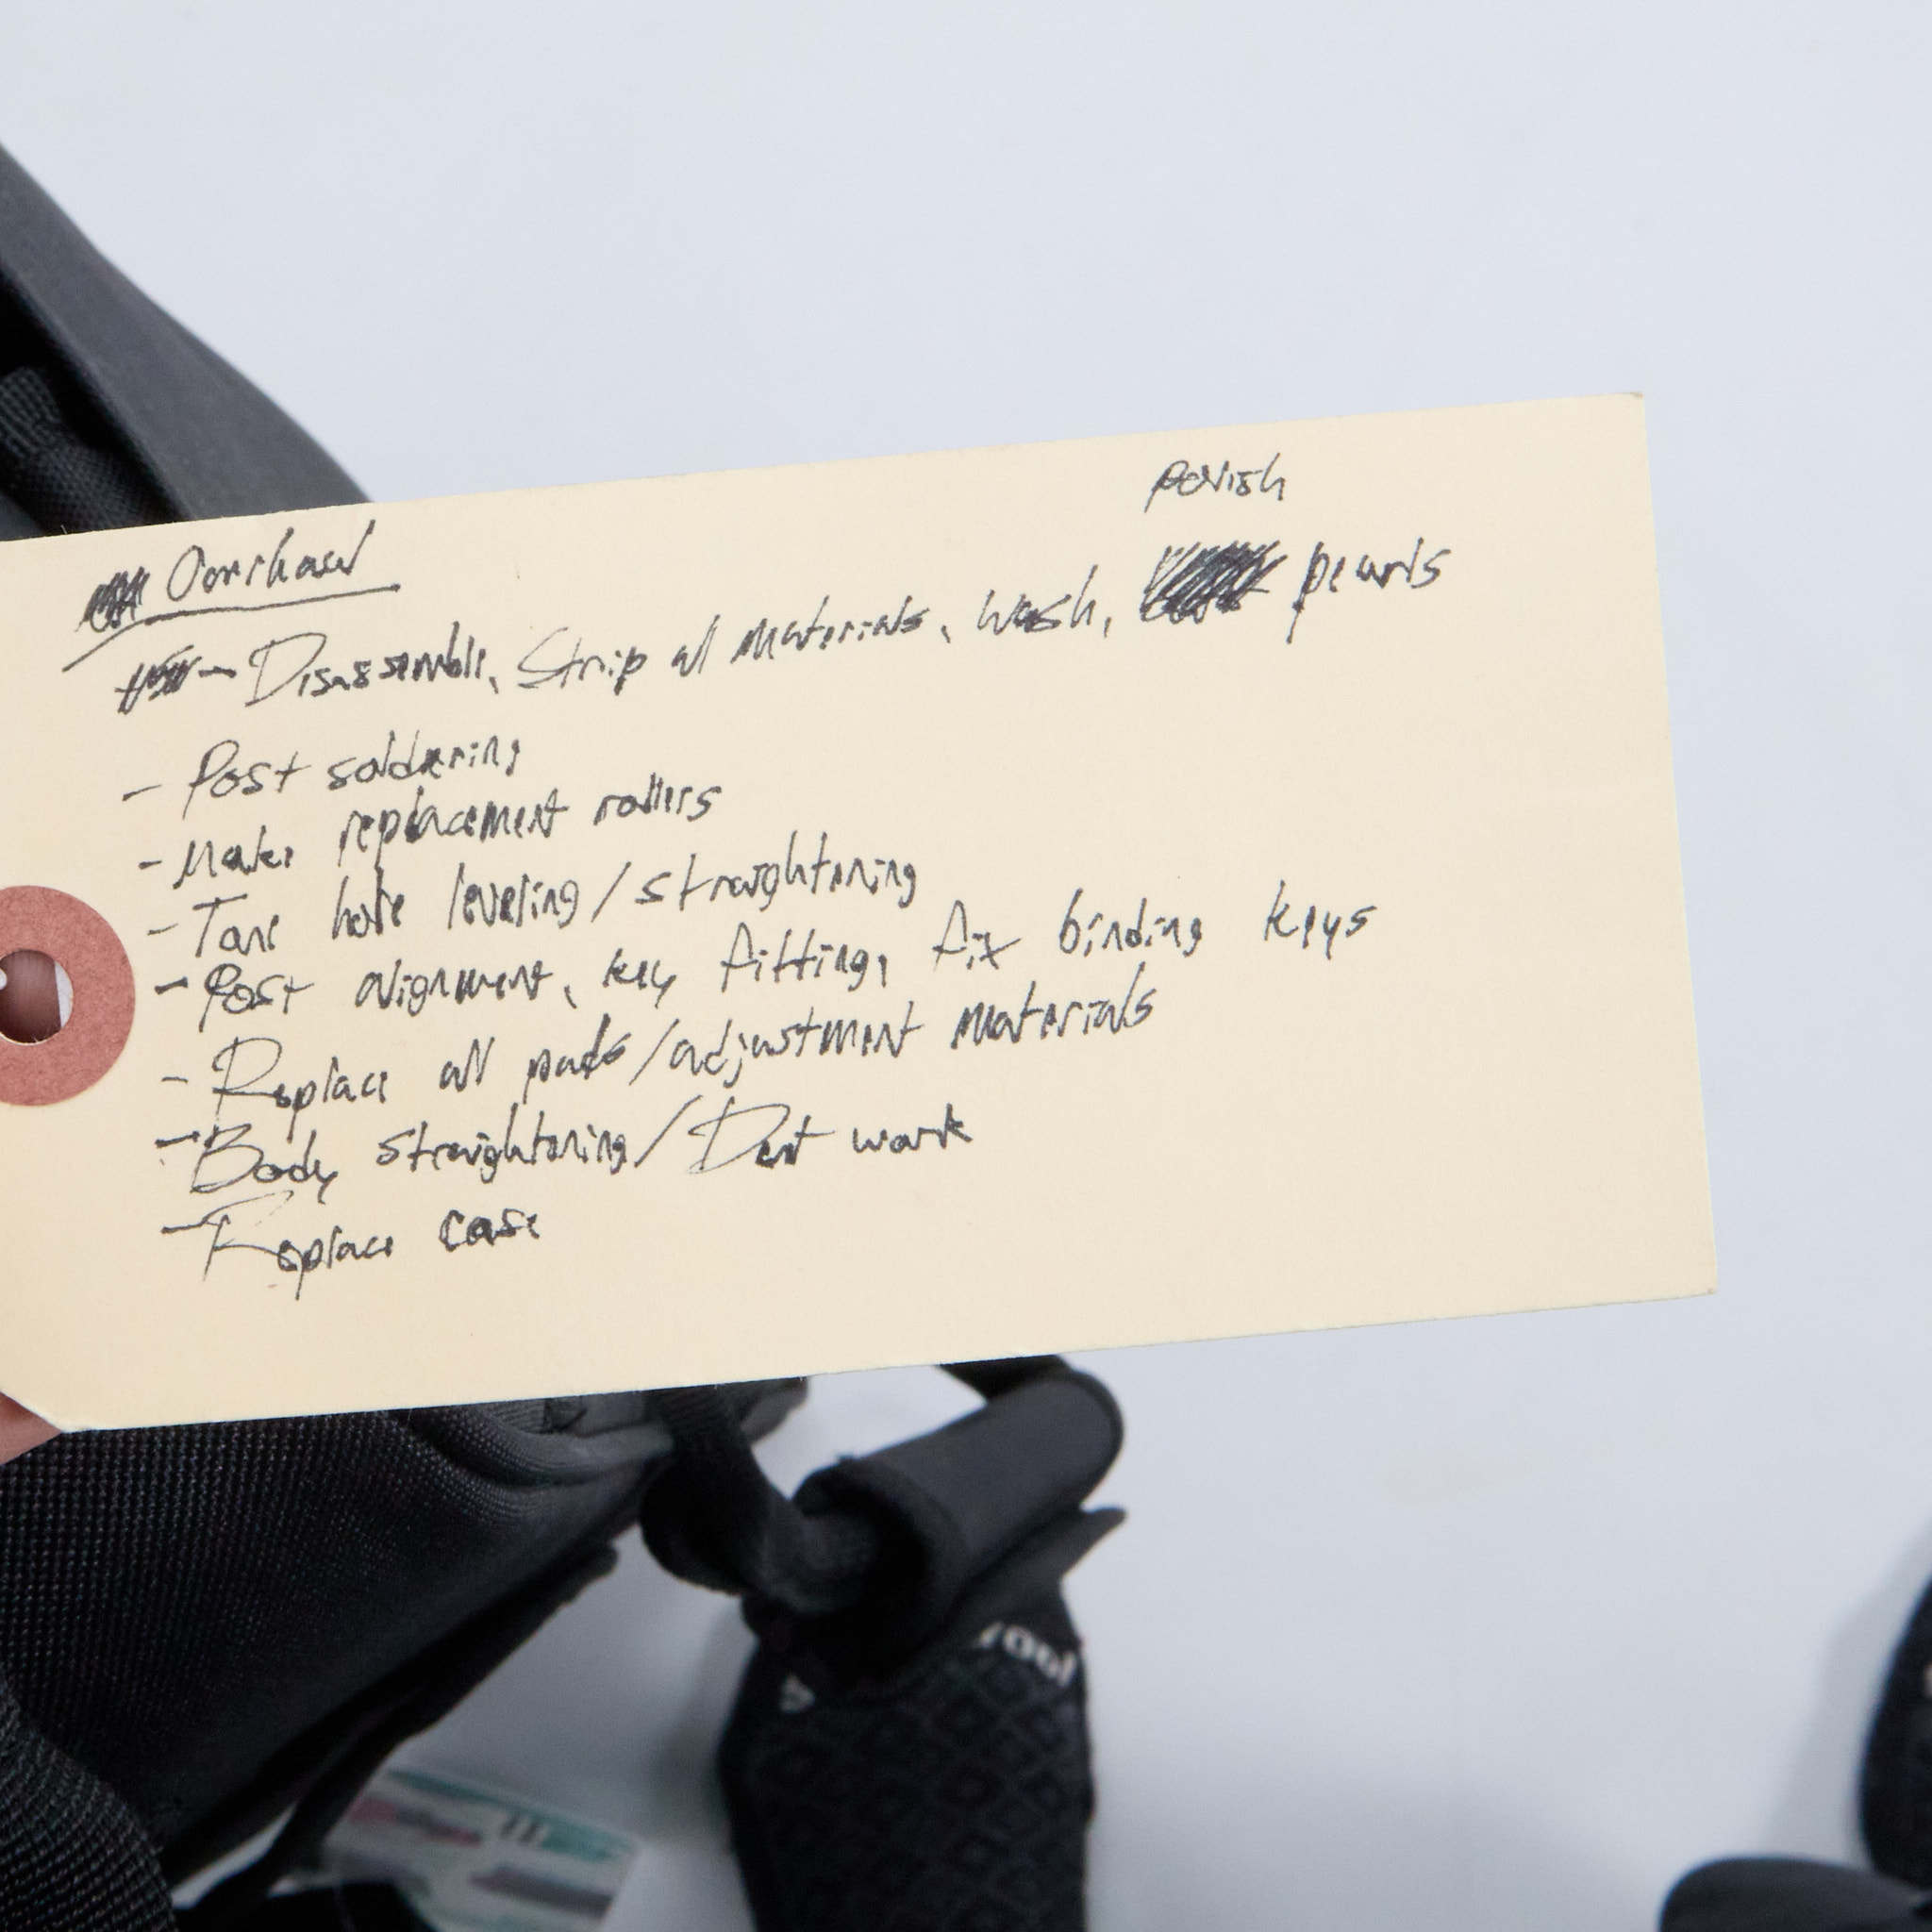 Overhaul
polish
- Disassemble, Strip all materials, wash, pearls
- Post soldering
- Make replacement rollers
- Tone hole leveling/straightening
- Post alignment, key fitting, fix binding keys
- Replace all pads/adjustment materials
- Body straightening/Dent work
- Replace case